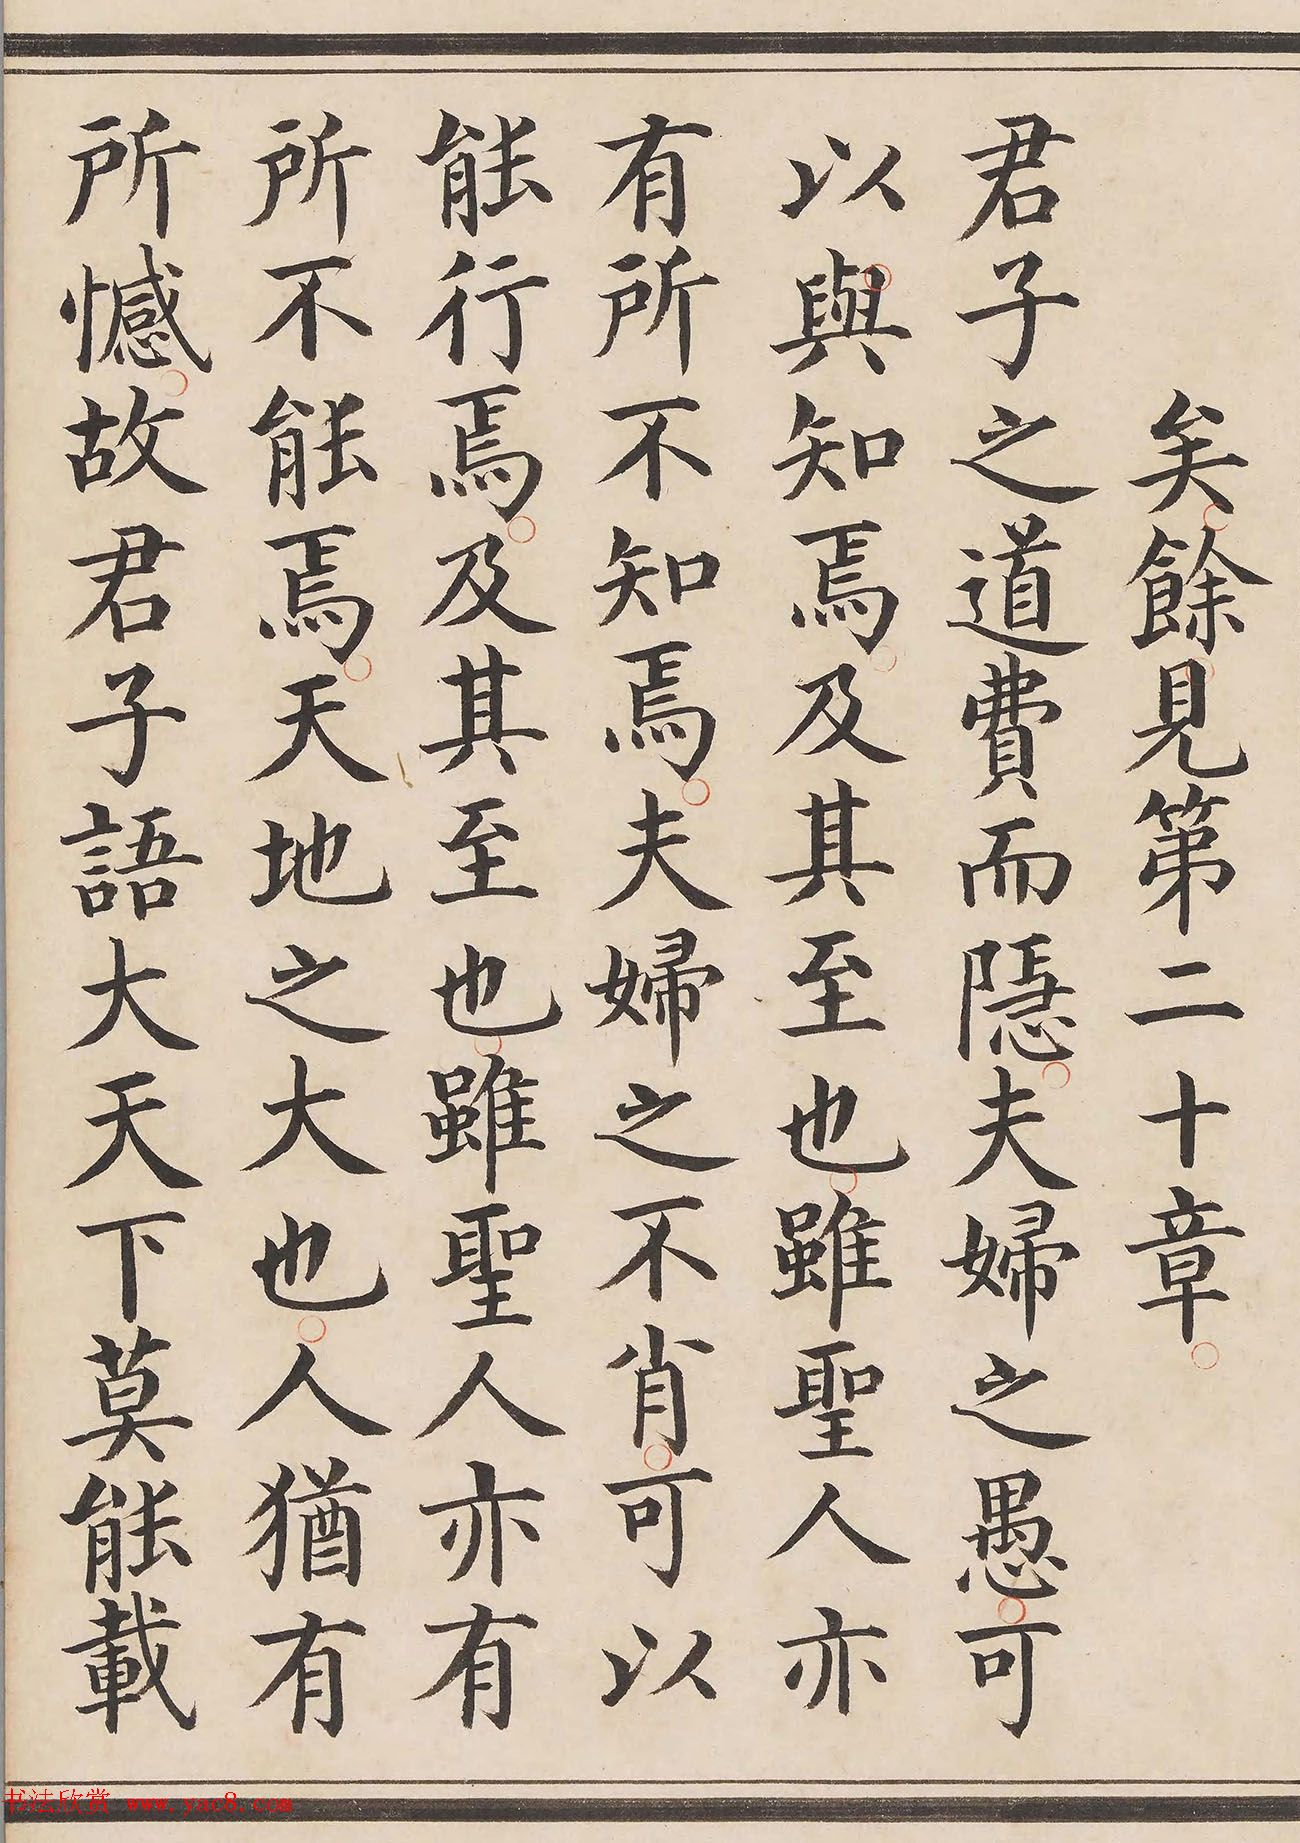 矣餘見第二十章
君子之道費而隱夫婦之愚可
以與知焉及其至也雖聖人亦
有所不知焉夫婦之不肖可以
能行焉及其至也雖聖人亦有
所不能焉天地之大也人猶有
所憾故君子語大天下莫能載
书法欣赏 www.yac8.com